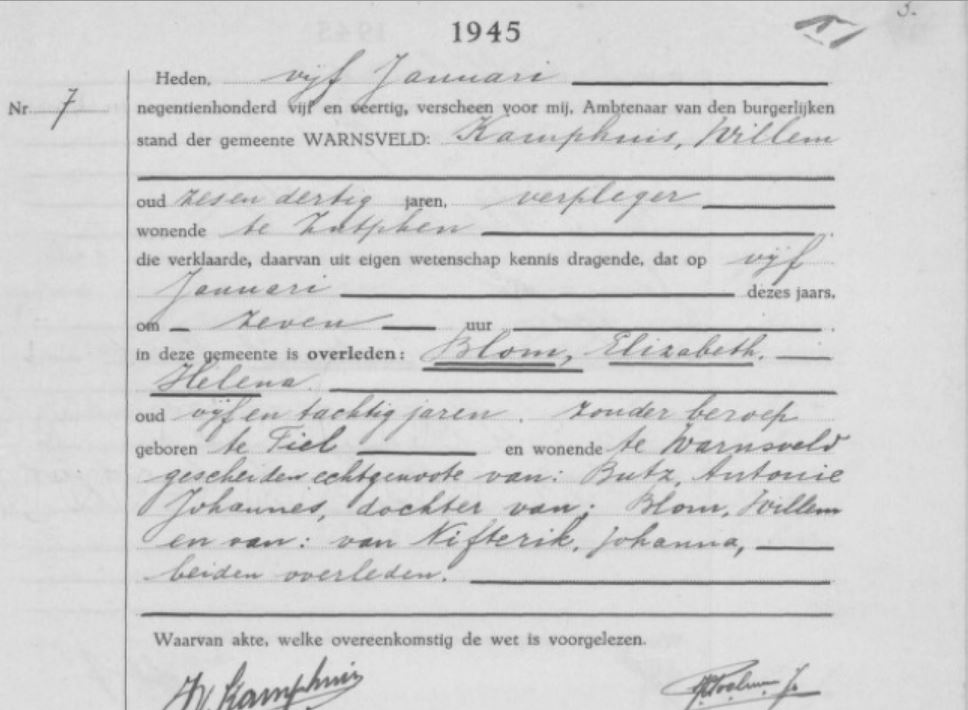 1945
5.
Heden, vijf Januari
Nr. 7
negentienhonderd vijf en veertig, verscheen voor mij, Ambtenaar van den burgerlijken
stand der gemeente WARNSVELD: Kamphuis, Willem
oud zesendertig jaren, verpleger
wonende te Zutphen
die verklaarde, daarvan uit eigen wetenschap kennis dragende, dat op vijf
Januari dezes jaars,
om zeven uur
in deze gemeente is overleden: Blom, Elizabeth,
Helena.
oud vijf en tachtig jaren. zonder beroep
geboren te Tiel en wonende te Warnsveld
gescheiden echtgenoote van: Butz, Antonie
Johannes, dochter van: Blom, Willem
en van: van Nifterik, Johanna,
beiden overleden.
Waarvan akte, welke overeenkomstig de wet is voorgelezen.
W. Kamphuis